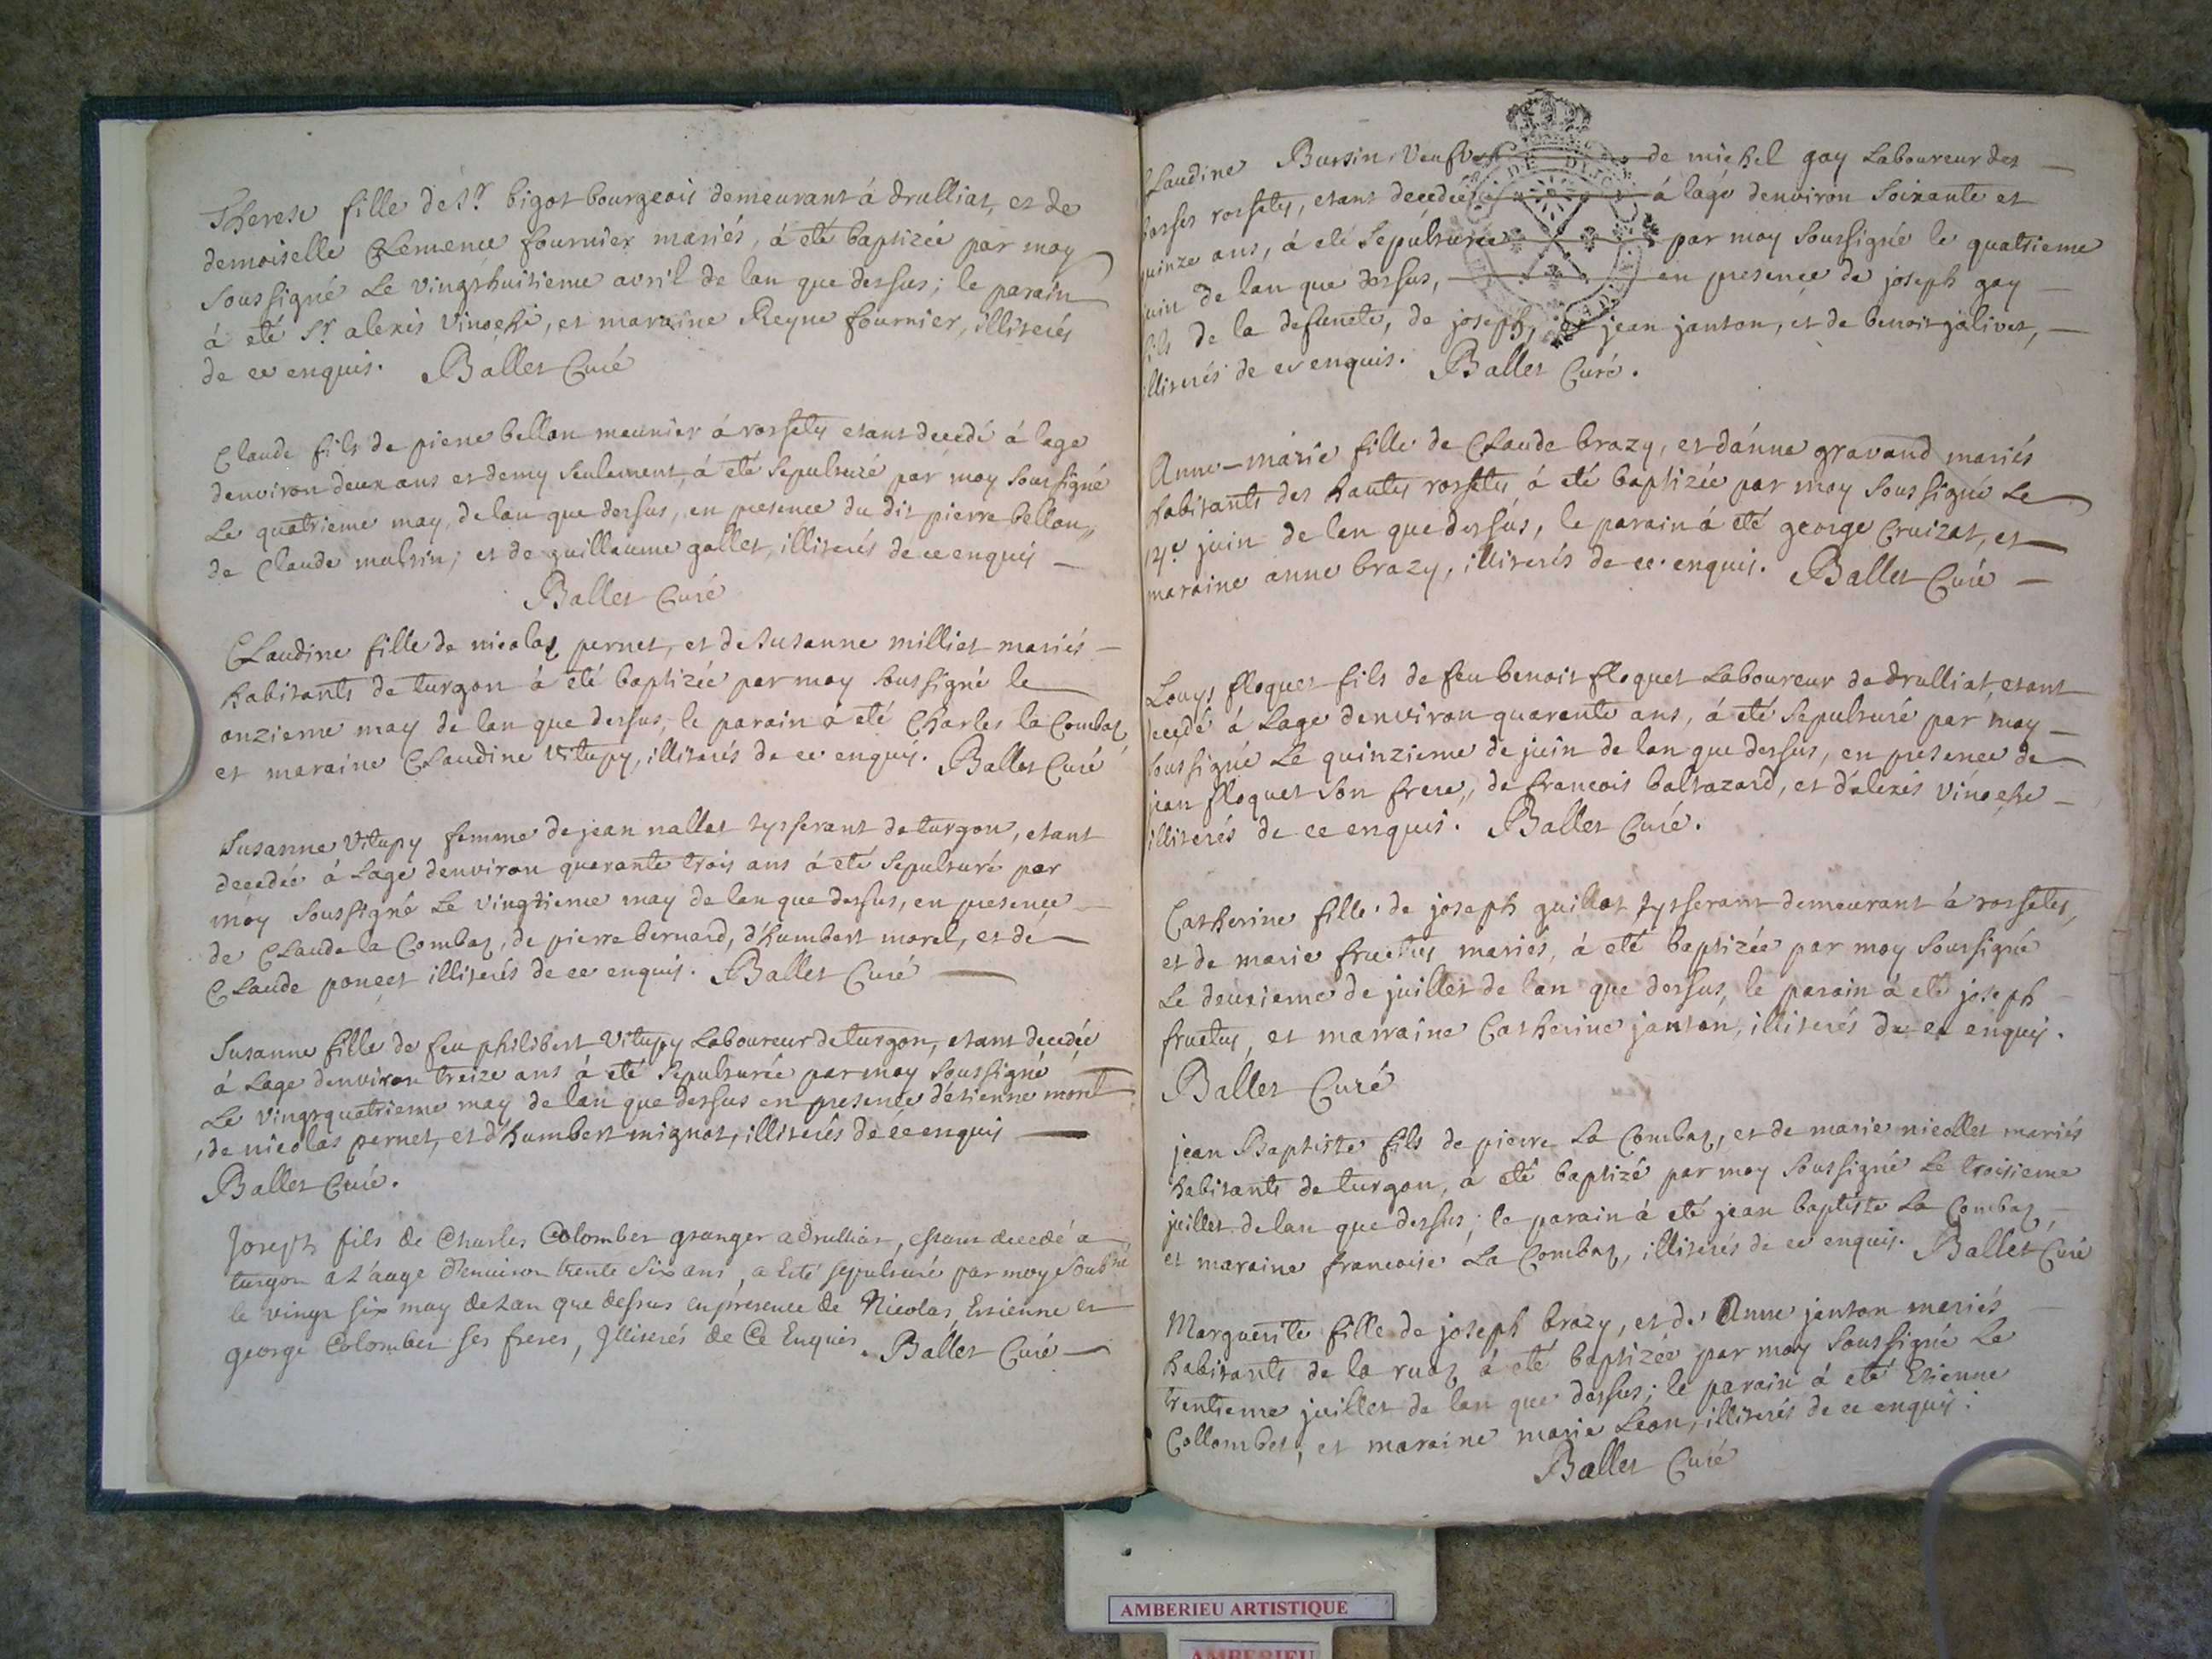 Therese fille de Sr. bigot bourgeois demeurant á drulliat, et de
demoiselle Clemence fournier mariés, á eté baptizée par moy
Soussigné Le vingthuitieme avril de lan que dessus; le parain
á eté Sr. alexis vinoesse, et maraine Reyne fournier, illiterés
de ce enquis. Ballet Curé
Claude fils de pierre bellon meunier á rossetes etant decedé á lage
denviron deux ans et demy Seulement, á eté Sepulturé par moy Soussigné
Le quatrieme may, de lan que dessus, en presence du dit pierre bellon,
de Claude multin; et de guillaume gallet, illiterés de ce enquis
Ballet Curé
Claudine fille de nicolas pernet, et de Susanne milliet mariés
habitants de turgon á eté baptizée par moy Soussigné le
onzieme may de lan que dessus, le parain á eté Charles la Combaz
et maraine Claudine Vitupy, illiterés de ce enquis. Ballet Curé
Susanne Vitupy femme de jean nallet tysserant de turgon, etant
decedée á Lage denviron quarante trois ans á eté Sepulturé par
moy Soussigné Le vingtieme may de lan que dessus, en presence
de Claude la Combaz, de pierre bernard, d'humbert morel, et de
Claude poncet illiterés de ce enquis. Ballet Curé
Susanne fille de feu philibert Vitupy Laboureur de turgon, etant decedée
á Lage denviron treize ans á eté Sepulturée par moy Soussigné
Le vingtquatrieme may de lan que dessus en presence d'etienne morel
, de nicolas pernet, et d'humbert mignot, illiterés de ce enquis
Ballet Curé.
Joseph fils de Charles Colombet granger a Drulliat, estant decedé a
turgon a L'auge d'enuiron trente Six ans, a esté sepulturé par moy Soubné
le vingt six may de Lan que dessus en presence de Nicolas, Estienne et
george Colombet ses freres, Illiterés de Ce Enquis. Ballet Curé
Claudine Bussin veufve de michel gay Laboureur des
basses rossetes, etant decedée á lage denviron Soixante et
quinze ans, á eté Sepulturée par moy Soussigné le quatrieme
juin de lan que dessus, en presence de joseph gay
fils de la defuncte, de joseph, jean janton, et de benoit jolivet,
illiterés de ce enquis. Ballet Curé.
Anne-marie fille de Claude brazy, et d'anne gravand mariés
habitants des hautes rossetes á eté baptizée par moy Soussigné Le
14e. juin de lan que dessus, le parain á eté george Cruizat, et
maraine anne brazy, illiterés de ce enquis. Ballet Curé
Louys floquet fils de feu benoit floquet Laboureur de drulliat, etant
decedé á Lage denviron quarante ans, á eté Sepulturé par moy
Soussigné Le quinzieme de juin de lan que dessus, en presence de
jean floquet Son frere, de francois baltazard, et d'alexis vinoesse
illiterés de ce enquis. Ballet Curé.
Catherine fille de joseph guillot tysserant demeurant á rossetes,
et de marie fructus mariés, á eté baptizée par moy Soussigné
Le deuxieme de juillet de lan que dessus, le parain á eté joseph
fructus, et marraine Catherine janton, illiterés de ce enquis.
Ballet Curé
jean Baptiste fils de pierre La Combaz, et de marie nicollet mariés
habitants de turgon, á eté baptizé par moy Soussigné Le troisieme
juillet de lan que dessus; le parain á eté jean baptiste La Combaz,
et maraine francoise La Combaz, illiterés de ce enquis. Ballet Curé
Marguerite fille de joseph brazy, et de Anne janton mariés
habitants de la ruaz á eté baptizée par moy Soussigné Le
trentieme juillet de lan que dessus; le parain á eté Etienne
Collombet, et maraine marie Leon, illiterés de ce enquis.
Ballet Curé
AMBERIEU ARTISTIQUE
AMBERIEU